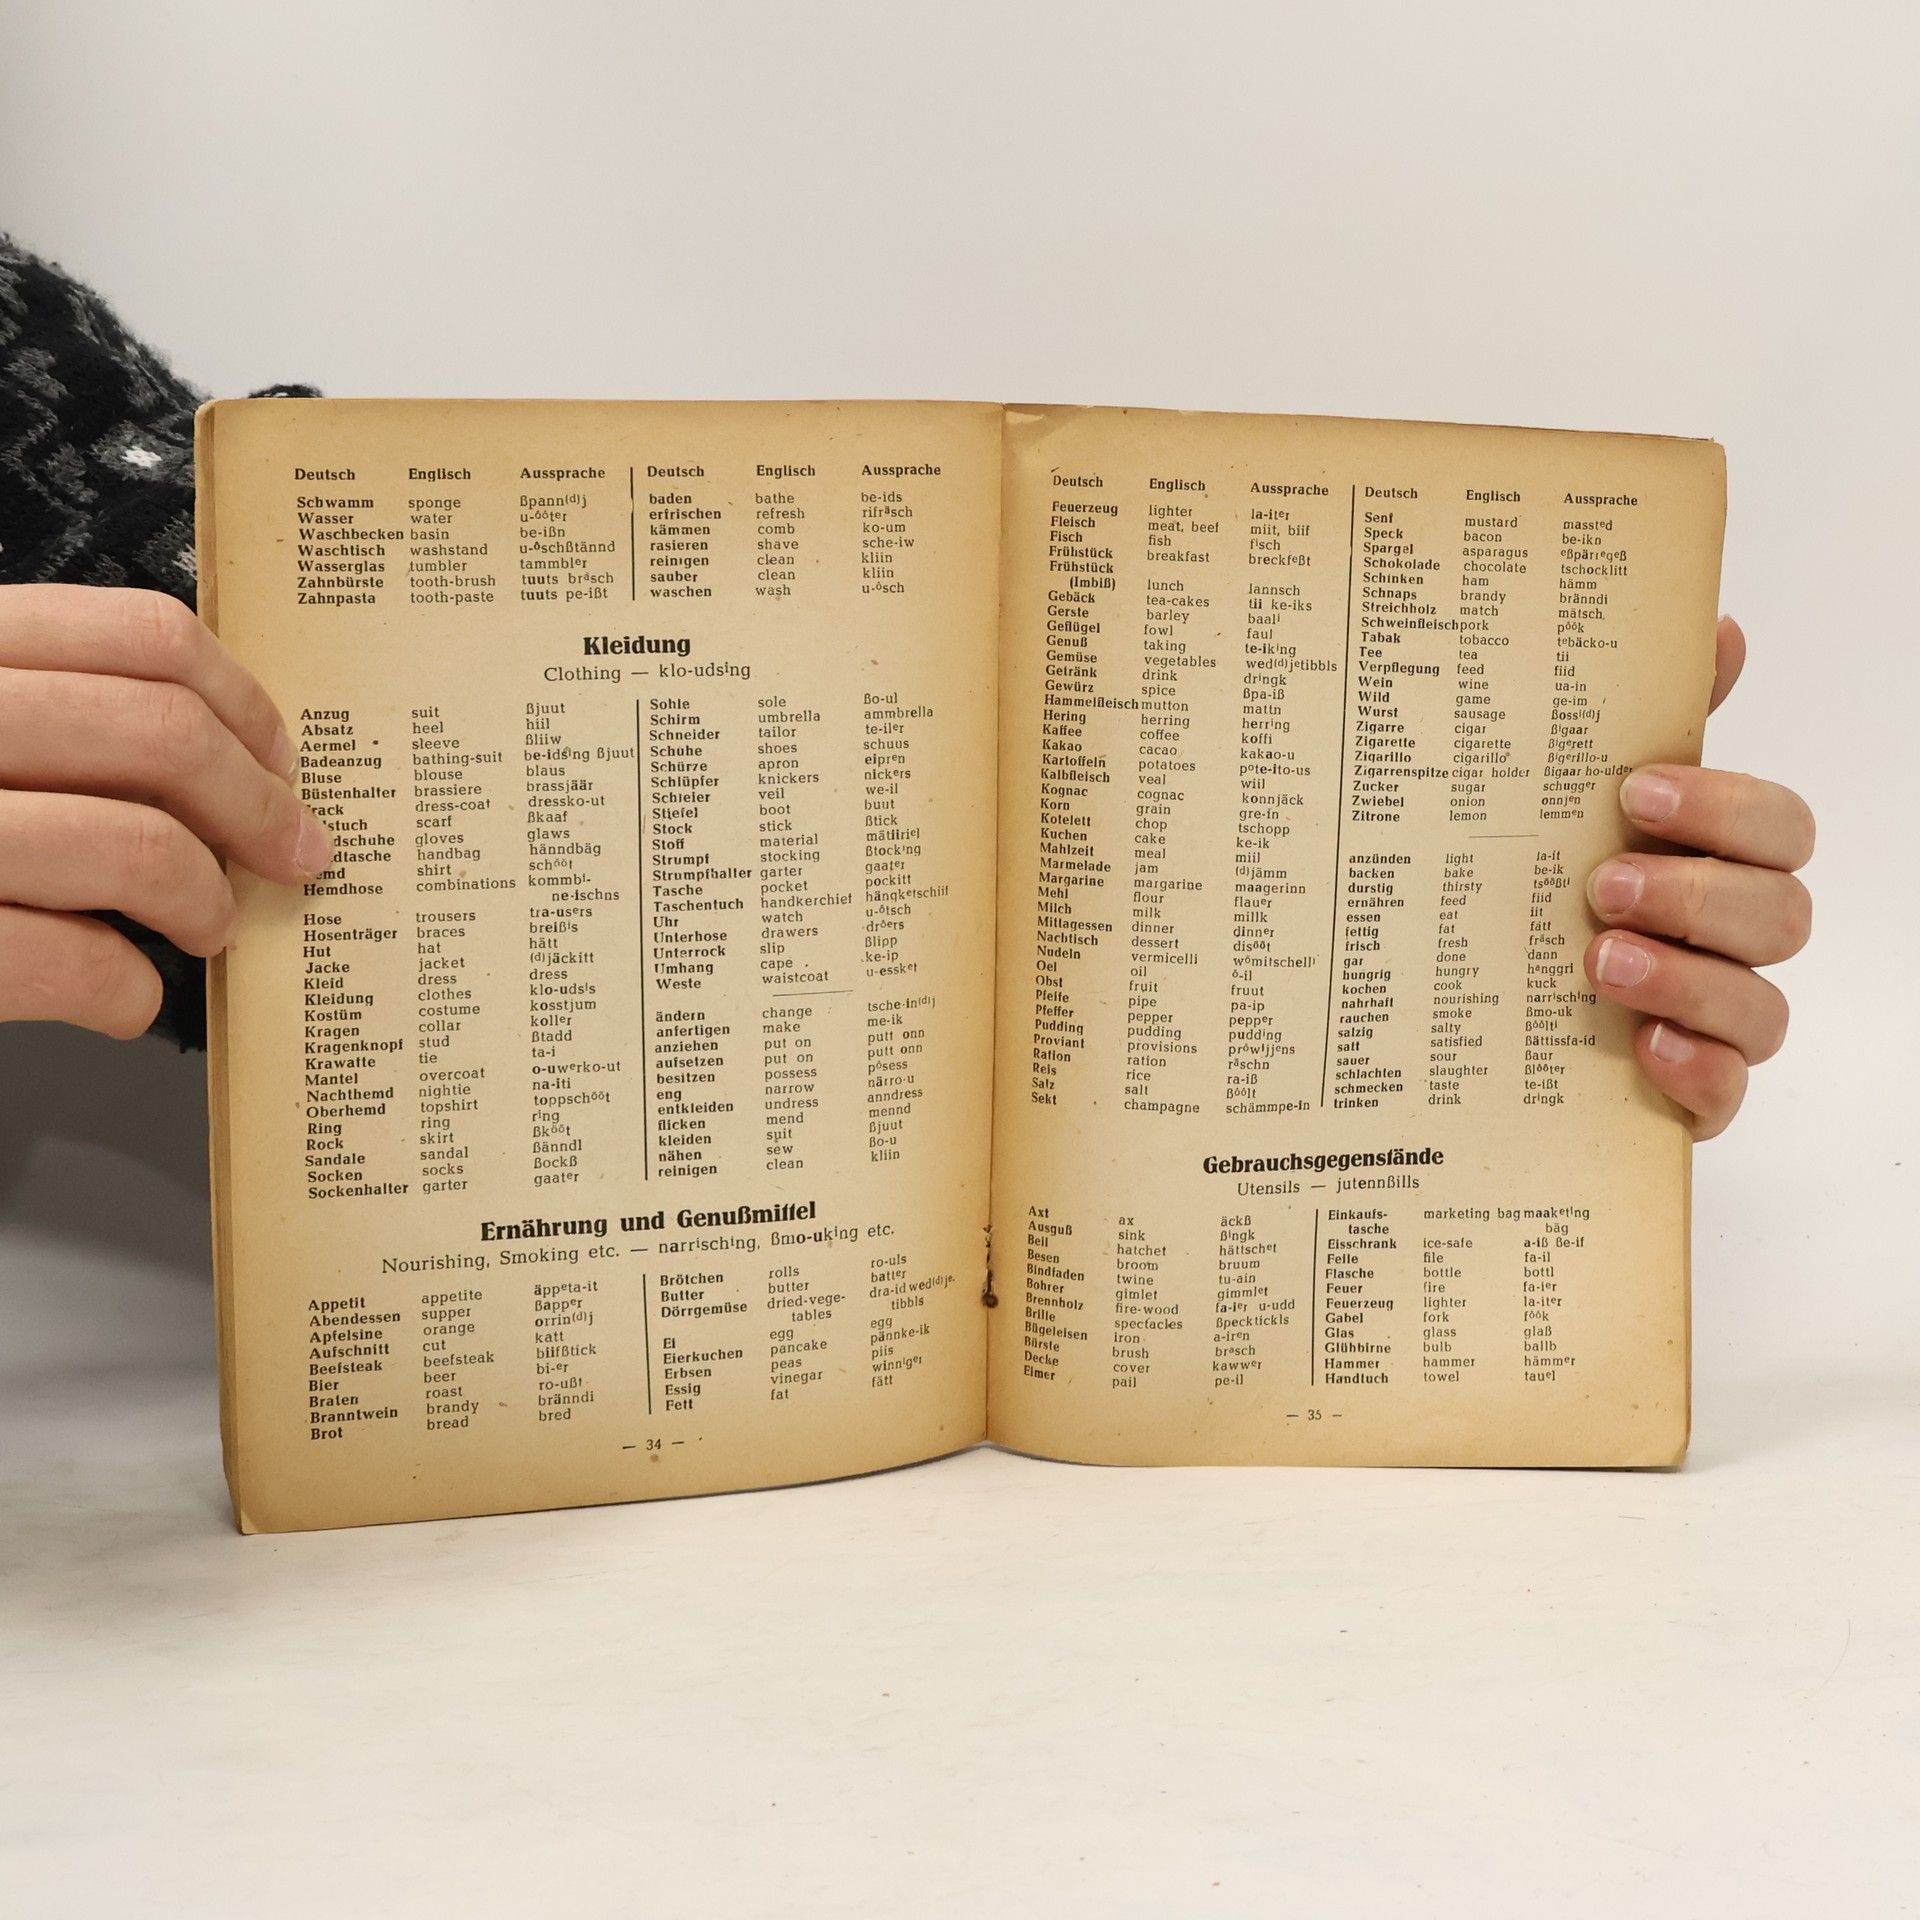 Deutsch Englisch Aussprache
Schwamm sponge ßpann(d)j
Wasser water u-ôôter
Waschbecken basin be-ißn
Waschtisch washstand u-ôschßtännd
Wasserglas tumbler tammbler
Zahnbürste tooth-brush tuuts brasch
Zahnpasta tooth-paste tuuts pe-ißt
Deutsch Englisch Aussprache
baden bathe be-ids
erfrischen refresh rifräsch
kämmen comb ko-um
rasieren shave sche-iw
reinigen clean kliin
sauber clean kliin
waschen wash u-ôsch
Kleidung
Clothing — klo-udsing
Anzug suit ßjuut
Absatz heel hiil
Aermel sleeve ßliiw
Badeanzug bathing-suit be-idsing ßjuut
Bluse blouse blaus
Büstenhalter brassiere brassjäär
rack dress-coat dressko-ut
lstuch scarf ßkaaf
dschuhe gloves glaws
dtasche handbag hänndbäg
emd shirt schööt
Hemdhose combinations kommbi-
ne-ischns
Hose trousers tra-users
Hosenträger braces breißis
Hut hat hätt
Jacke jacket (d)jäckitt
Kleid dress dress
Kleidung clothes klo-udsis
Kostüm costume kosstjum
Kragen collar koller
Kragenknopf stud ßtadd
Krawatte tie ta-i
Mantel overcoat o-uwerko-ut
Nachthemd nightie na-iti
Oberhemd topshirt toppschööt
Ring ring ring
Rock skirt ßkööt
Sandale sandal ßänndl
Socken socks ßockß
Sockenhalter garter gaater
Sohle sole ßo-ul
Schirm umbrella ammbrella
Schneider tailor te-iler
Schuhe shoes schuus
Schürze apron eipren
Schlüpfer knickers nickers
Schleier veil we-il
Stiefel boot buut
Stock stick ßtick
Stoff material mätiiriel
Strumpf stocking ßtocking
Strumpfhalter garter gaater
Tasche pocket pockitt
Taschentuch handkerchief hängketschiif
Uhr watch u-ôtsch
Unterhose drawers drôers
Unterrock slip ßlipp
Umhang cape ke-ip
Weste waistcoat u-essket
ändern change tsche-in(d)j
anfertigen make me-ik
anziehen put on putt onn
aufsetzen put on putt onn
besitzen possess pôsess
eng narrow närro-u
entkleiden undress anndress
flicken mend mennd
kleiden suit ßjuut
nähen sew ßo-u
reinigen clean kliin
Ernährung und Genußmittel
Nourishing, Smoking etc. — narrisching, ßmo-uking etc.
Appetit appetite äppeta-it
Abendessen supper ßapper
Apfelsine orange orrin(d)j
Aufschnitt cut katt
Beefsteak beefsteak biifßtick
Bier beer bi-er
Braten roast ro-ußt
Branntwein brandy bränndi
Brot bread bred
Brötchen rolls ro-uls
Butter butter batter
Dörrgemüse dried-vege- dra-id wed(d)je-
tables tibbls
Ei egg egg
Eierkuchen pancake pännke-ik
Erbsen peas piis
Essig vinegar winniger
Fett fat fätt
— 34 —
Deutsch Englisch Aussprache
Feuerzeug lighter la-iter
Fleisch meat, beef miit, biif
Fisch fish fisch
Frühstück breakfast breckfeßt
Frühstück
(Imbiß) lunch lannsch
Gebäck tea-cakes tii ke-iks
Gerste barley baali
Geflügel fowl faul
Genuß taking te-iking
Gemüse vegetables wed(d)jetibbls
Getränk drink dringk
Gewürz spice ßpa-iß
Hammelfleisch mutton mattn
Hering herring herring
Kaffee coffee koffi
Kakao cacao kakao-u
Kartoffeln potatoes pote-ito-us
Kalbfleisch veal wiil
Kognac cognac konnjäck
Korn grain gre-in
Kotelett chop tschopp
Kuchen cake ke-ik
Mahlzeit meal miil
Marmelade jam (d)jämm
Margarine margarine maagerinn
Mehl flour flauer
Milch milk millk
Mittagessen dinner dinner
Nachtisch dessert disööt
Nudeln vermicelli wömitschelli
Oel oil ô-il
Obst fruit fruut
Pfeife pipe pa-ip
Pfeffer pepper pepper
Pudding pudding pudding
Proviant provisions prôwijjens
Ration ration räschn
Reis rice ra-iß
Salz salt ßôôlt
Sekt champagne schämmpe-in
Deutsch Englisch Aussprache
Senf mustard massted
Speck bacon be-ikn
Spargel asparagus eßpärregeß
Schokolade chocolate tschocklitt
Schinken ham hämm
Schnaps brandy bränndi
Streichholz match mätsch
Schweinfleisch pork pôôk
Tabak tobacco tebäcko-u
Tee tea tii
Verpflegung feed fiid
Wein wine ua-in
Wild game ge-im
Wurst sausage ßossi(d)j
Zigarre cigar ßigaar
Zigarette cigarette ßigerett
Zigarillo cigarillo ßigerillo-u
Zigarrenspitze cigar holder ßigaar ho-ulder
Zucker sugar schugger
Zwiebel onion onnjen
Zitrone lemon lemmen
anzünden light la-it
backen bake be-ik
durstig thirsty tsöößti
ernähren feed fiid
essen eat iit
fettig fat fätt
frisch fresh fräsch
gar done dann
hungrig hungry hanggri
kochen cook kuck
nahrhaft nourishing narrisching
rauchen smoke ßmo-uk
salzig salty ßôôlti
satt satisfied ßättissfa-id
sauer sour ßaur
schlachten slaughter ßlôôter
schmecken taste te-ißt
trinken drink dringk
Gebrauchsgegenstände
Utensils — jutennßills
Axt ax äckß
Ausguß sink ßingk
Beil hatchet hättschet
Besen broom bruum
Bindfaden twine tu-ain
Bohrer gimlet gimmlet
Brennholz fire-wood fa-ier u-udd
Brille spectacles ßpecktickls
Bügeleisen iron a-iren
Bürste brush brasch
Decke cover kawwer
Eimer pail pe-il
Einkaufs- marketing bag maaketing
tasche bäg
Eisschrank ice-safe a-iß ße-if
Feile file fa-il
Flasche bottle bottl
Feuer fire fa-ier
Feuerzeug lighter la-iter
Gabel fork fôôk
Glas glass glaß
Glühbirne bulb ballb
Hammer hammer hämmer
Handtuch towel tauel
— 35 —